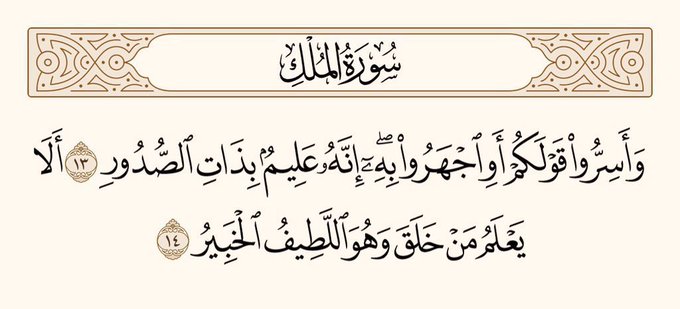 سُورَةُ المُلْكِ
وَأَسِرُّوا۟ قَوْلَكُمْ أَوِ ٱجْهَرُوا۟ بِهِۦٓۖ إِنَّهُۥ عَلِيمٌۢ بِذَاتِ ٱلصُّدُورِ ١٣ أَلَا
يَعْلَمُ مَنْ خَلَقَ وَهُوَ ٱللَّطِيفُ ٱلْخَبِيرُ ١٤